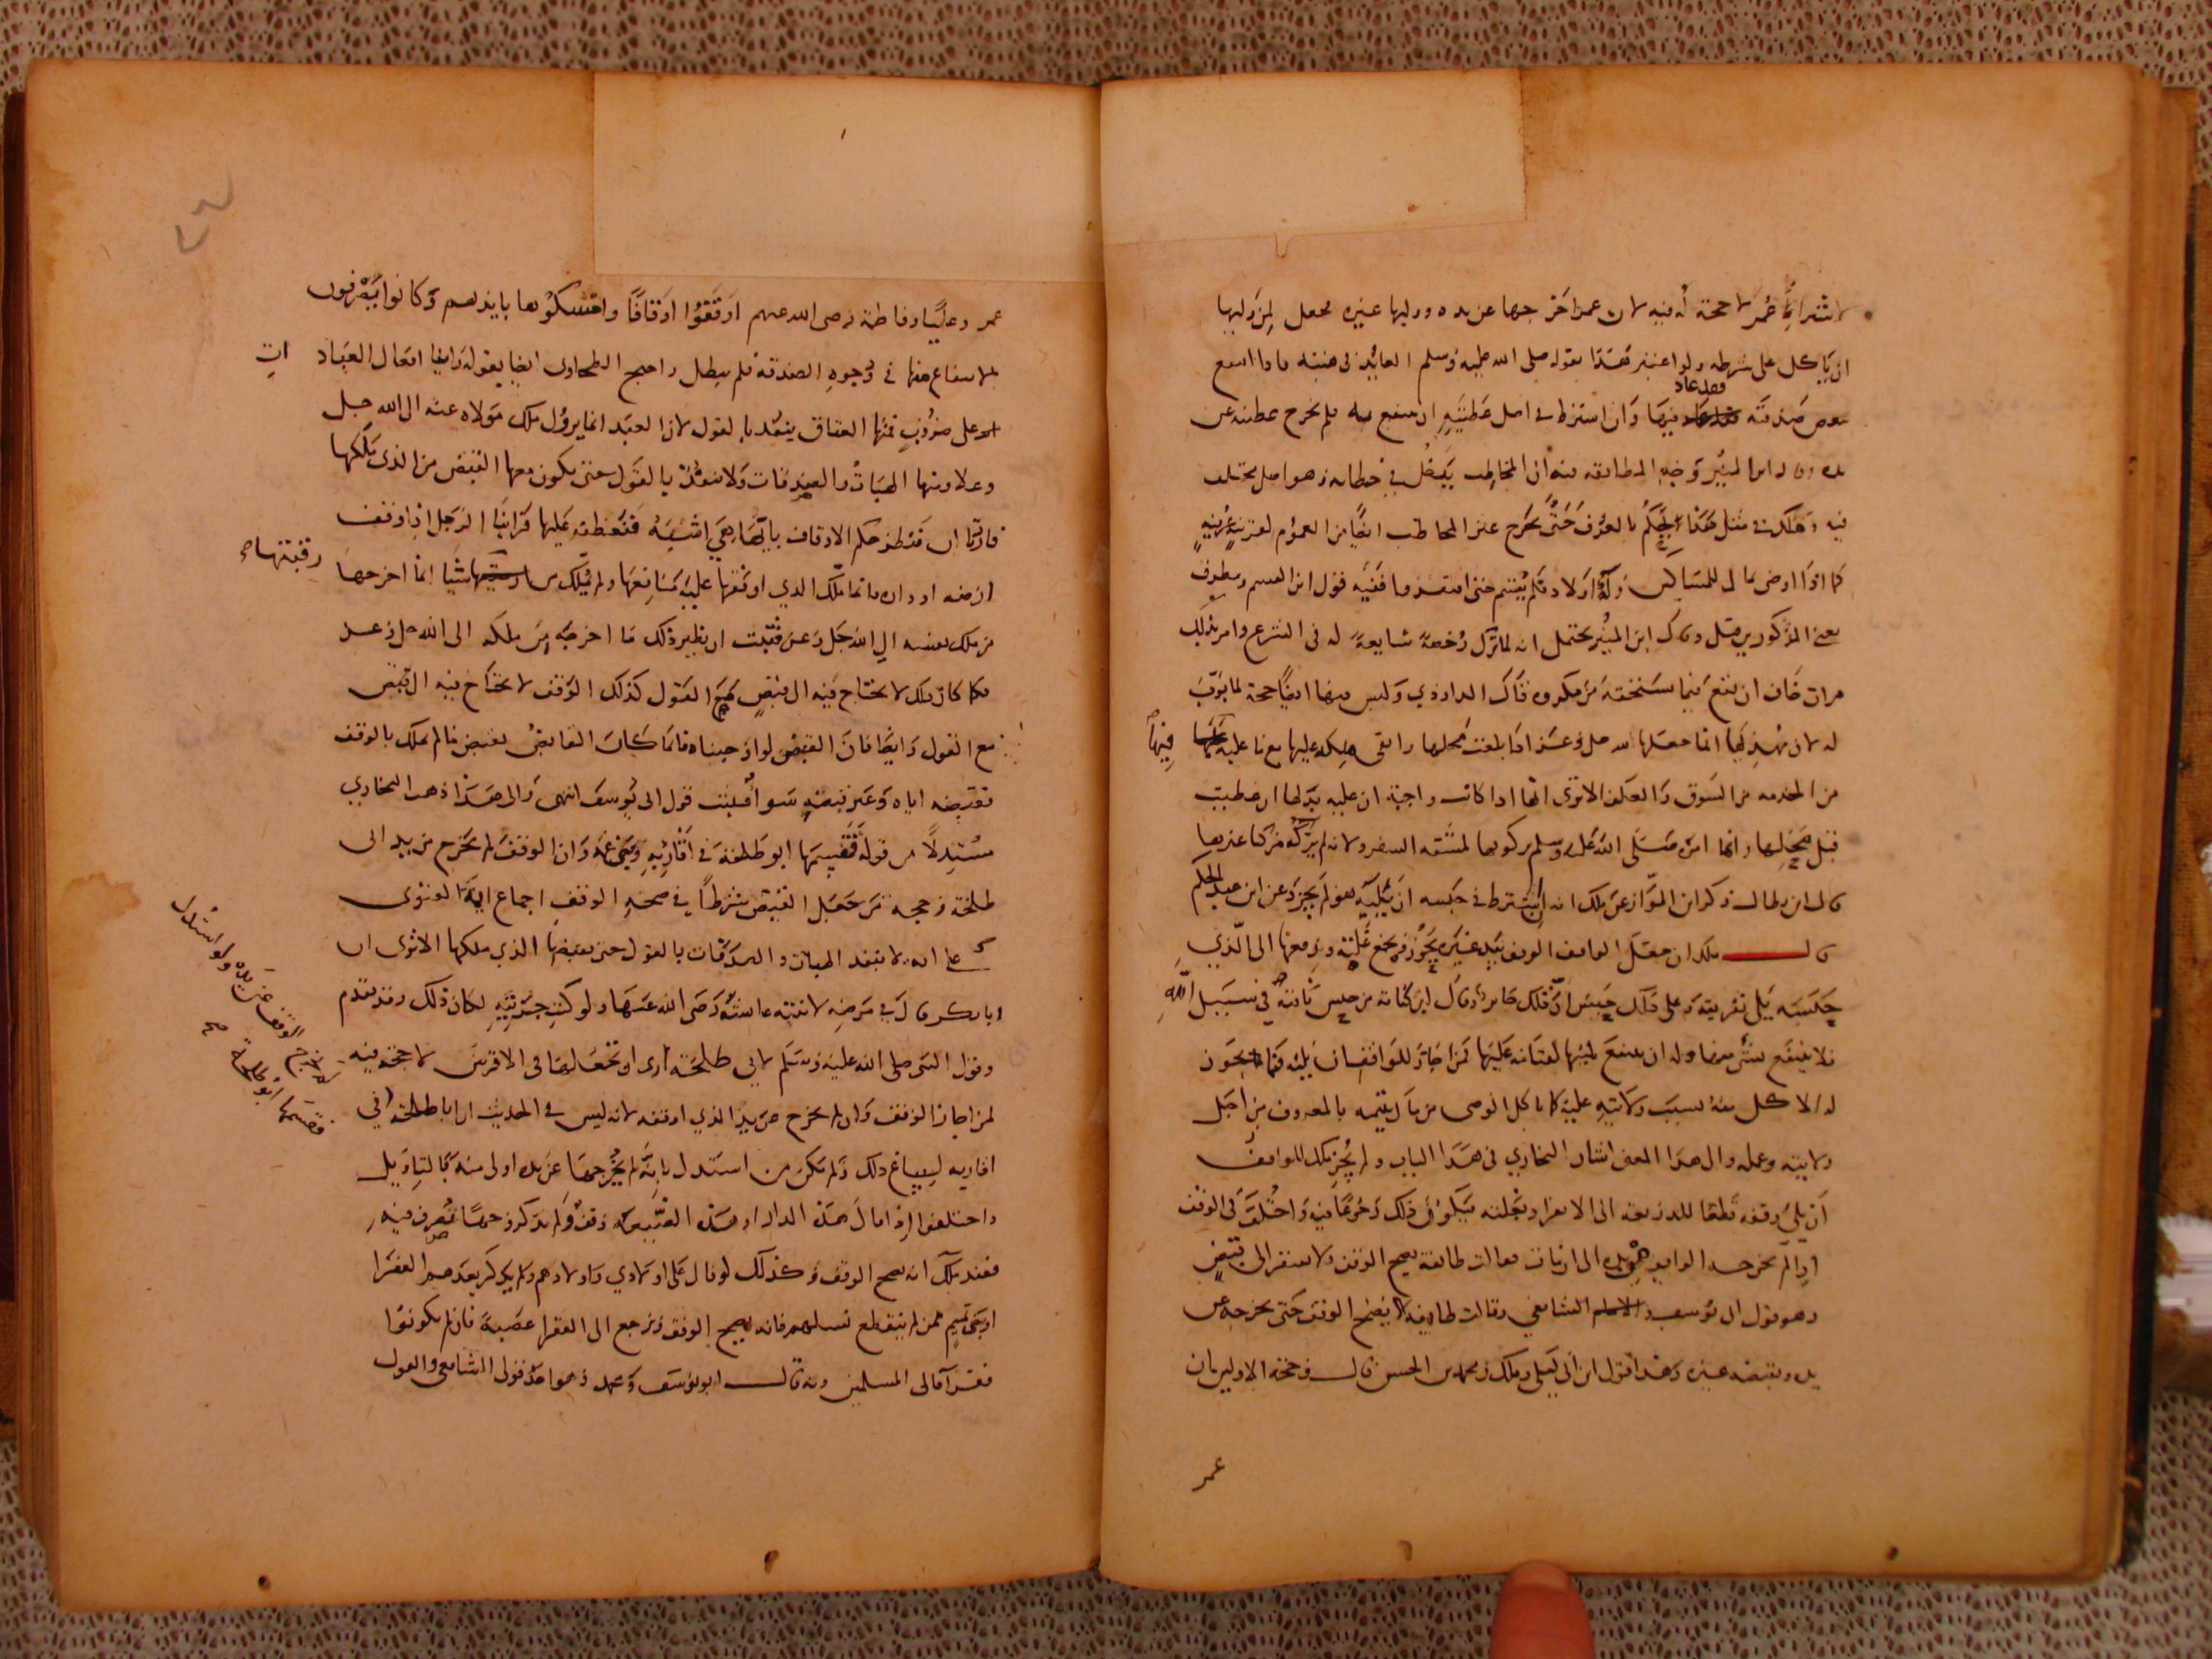 لاشتراط عمر لا حجة له فيه لان عمر اخرجها عن يده ووليها غيره فجعل لمن وليها
ان ياكل على شرطه ولو اعتبر هذا بقوله صلى الله عليه وسلم العائد في هبته واذا انتفع
ببعض صدقته فقد عاد فيها وان اشترط في اصل عطيته ان ينتفع به فلم تخرج عطيته عن
يده وقال ابن المنير وجه المطابقة منه ان المخاطب يدخل في خطابه وهو اصل مختلف
فيه ومالك في مثل هذا يحكم بالعرف حتى يخرج غير المخاطب ايضا من العموم لقرينة عرفية
كما اذا اوصى بمال للمساكين وله اولاد فلم يقسم حتى افتقروا ففيه قول ابن القسم ومطرف
يعني المذكورين قبل وقال ابن المنير يحتمل انه لما ترك رخصة شايعة له في الشرع وامر بذلك
مرات خاف ان يقع فيما يستحقه من مكروه وقال الداودي وليس فيها ايضا حجة لما بوب
له لان مهديها انما جعلها لله جل وعز اذا بلغت محلها وابقى ملكه عليها مع ما عليه فيها
من الخدمة من السوق والعلف الا ترى انها اذا كانت واجبة ان عليه بدلها ان عطبت
قبل محلها وانما امره صلى الله عليه وسلم بركوبها لمشقة السفر ولانه لم يركبه مركبا غيرها
قال ابن بطال وذكر ابن المواز عن ملك انه ان اشترط في حبسه ان يليه هو لم يجز وعن ابن عبد الحكم
قال ملك ان جعل الواقف الوقف بيد غيره يحوزه ويجمع غلته ويدفعها الى الذي
حبسه يلي تفريقه وعلى ذلك حبس ان ذلك جايز وقال ابن كنانة من حبس ناقته في سبيل الله
فلا ينتفع بشئ منها وله ان ينتفع بلبنها لقيامه عليها فمن اجاز للواقف ان يليه فانما يجوز
له الاكل منه بسبب ولايته عليه كما ياكل الوصي من مال يتيمه بالمعروف من اجل
ولايته وعمله والى هذا المعنى اشار البخاري في هذا الباب ولم يجز ملك للواقف
ان يلي وقفه قطعا للذريعة الى الانفراد بغلته فيكون ذلك رجوعا فيه واختلف في الوقف
اذا لم يخرجه الواقف من يده الى ان مات فقالت طائفة يصح الوقف ولا يفتقر الى قبض
وهو قول ابي يوسف والامام الشافعي وقالت طايفة لا يصح الوقف حتى يخرجه عن
يده ويقبضه غيره وهذا قول ابن ابي ليلى وملك ومحمد بن الحسن قال وحجة الاولين ان
عمر
عمر وعليا وفاطمة رضي الله عنهم اوقفوا اوقافا وامسكوها بايديهم وكانوا يصرفون
الانتفاع منها في وجوه الصدقة فلم يبطل واحتج الطحاوي ايضا بقوله راينا افعال العباد
على ضروب فمنها العتاق ينفذ بالقول لان العبد انما يزول ملك مولاه عنه الى الله جل
وعلا ومنها الهبات والصدقات ولا تنفذ بالقول حتى يكون معها القبض من الذي يملكها
فاردنا ان ننظر حكم الاوقاف بايها هي اشبه فنعطفه عليها فراينا الرجل اذا وقف
ارضه او داره فانما ملك الذي اوقفها عليه منافعها ولم يملك من رقبتها شيا انما اخرجها
من ملك نفسه الى الله جل وعز فثبت ان نظير ذلك ما اخرجه من ملكه الى الله جل وعز
فكما كان ذلك لا يحتاج فيه الى قبض مع القول كذلك الوقف لا يحتاج فيه الى قبض
مع القول وايضا فان القبض لو اوجبناه فانما كان القابض يقبض ما لم يملك بالوقف
فقبضه اياه وغير قبضه سوا فثبت قول ابي يوسف انتهى والى هذا ذهب البخاري
مستدلا من قوله فقسمها ابو طلحة في اقاربه وبني عمه وان الوقف لم يخرج من يد ابي
طلحة وحجة من جعل القبض شرطا في صحة الوقف اجماع ايمة الفتوى
على انه لا تنفذ الهبات والصدقات بالقول حتى يقبضها الذي ملكها الا ترى ان
ابا بكر قال في مرضه لابنته عائشة رضي الله عنها ولو كنت حزتيه لكان ذلك وقد تقدم
وقول النبي صلى الله عليه وسلم لابي طلحة ارى ان تجعلها في الاقربين لا حجة فيه
لمن اجاز الوقف وان لم يخرج عن يد الذي اوقفه لانه ليس في الحديث ان ابا طلحة
اقاربه ليساغ ذلك ولم يكن من استدل بانه لم يخرجها عن يده اولى منه بالتاويل
واختلفوا اذا قال هذه الدار او هذه الضيعة وقف ولم يذكر وجها تصرف فيه
فعند ملك انه يصح الوقف وكذلك لو قال على اولادي واولادهم ولم يذكر بعدهم الفقرا
او بني تميم ممن لم ينقطع نسلهم فانه يصح الوقف ويرجع الى الفقرا عصبة فان لم يكونوا
فقرا فالى المسلمين وبه قال ابو يوسف ومحمد وهو احد قولي الشافعي والقول
رقبتها